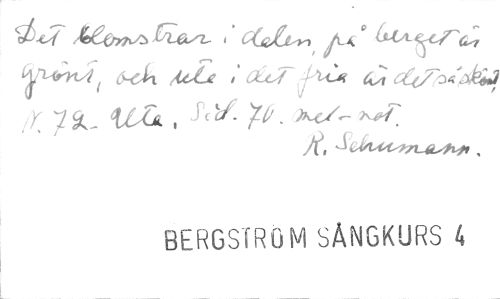 Det blomstrar i dalen, på berget är
grönt, och ute i det fria är det så skönt,
N. 72. Alta. Sid. 70. mel-not.
R. Schumann.
BERGSTRÖM SÅNGKURS 4